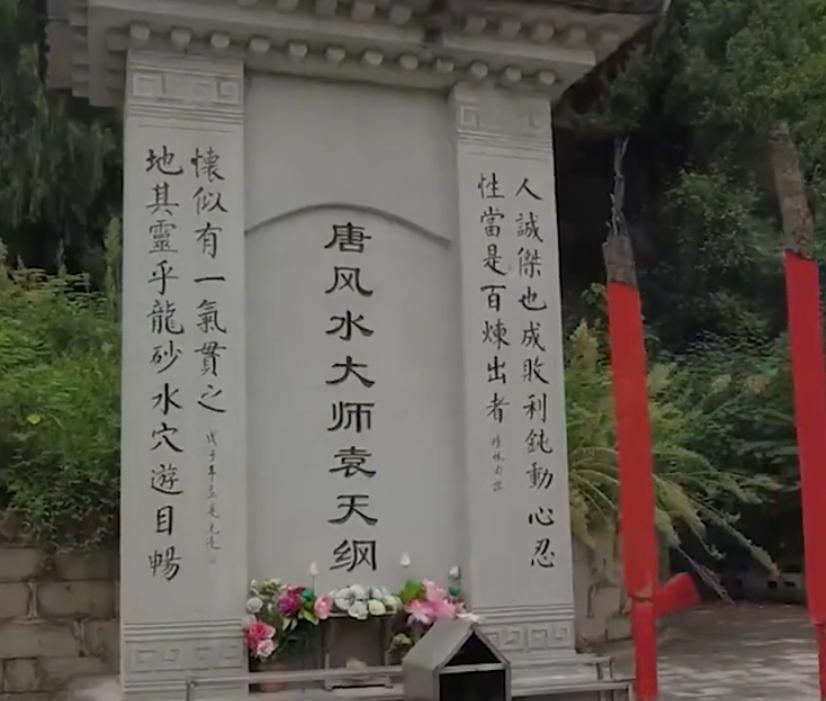 人誠傑也成敗利鈍動心忍
性當是百煉出者
唐风水大师袁天纲
地其靈乎龍砂水穴遊目暢
懷似有一氣貫之
戊子年孟夏